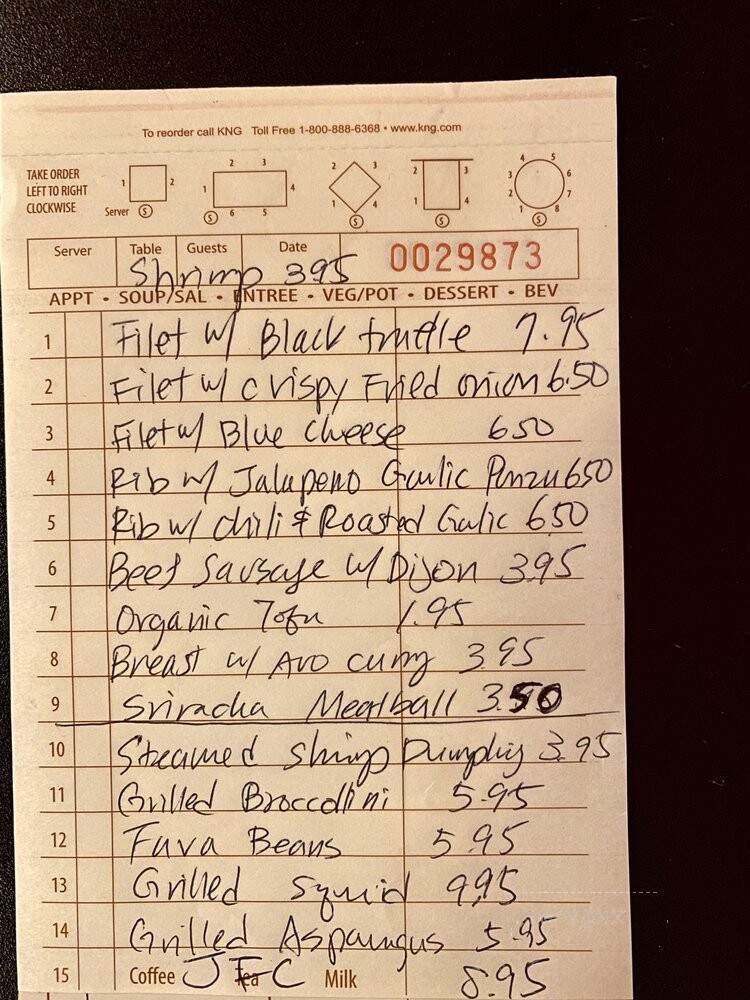 To reorder call KNG Toll Free 1-800-888-6368 • www.kng.com
TAKE ORDER
LEFT TO RIGHT
CLOCKWISE
Server S
1 2
1 2 3 4 5 6 S
1 2 3 4 S
1 2 3 4 S
1 2 3 4 5 6 7 8 S
Server Table Guests Date 0029873
Shrimp 3.95
APPT • SOUP/SAL • ENTREE • VEG/POT • DESSERT • BEV
1 Filet w/ Black truffle 7.95
2 Filet w/ crispy Fried onion 6.50
3 Filet w/ Blue cheese 650
4 Rib w/ Jalapeno Garlic Ponzu 650
5 Rib w/ chili & Roasted Galic 650
6 Beef Sausage w/ Dijon 3.95
7 Organic Tofu 1.95
8 Breast w/ Avo curry 3.95
9 Sriracha Meatball 3.50
10 Steamed Shrimp Dumpling 3.95
11 Grilled Broccollini 5.95
12 Fava Beans 5.95
13 Grilled Squid 9.95
14 Grilled Asparungus 5.95
15 Coffee Tea Milk JFC 8.95